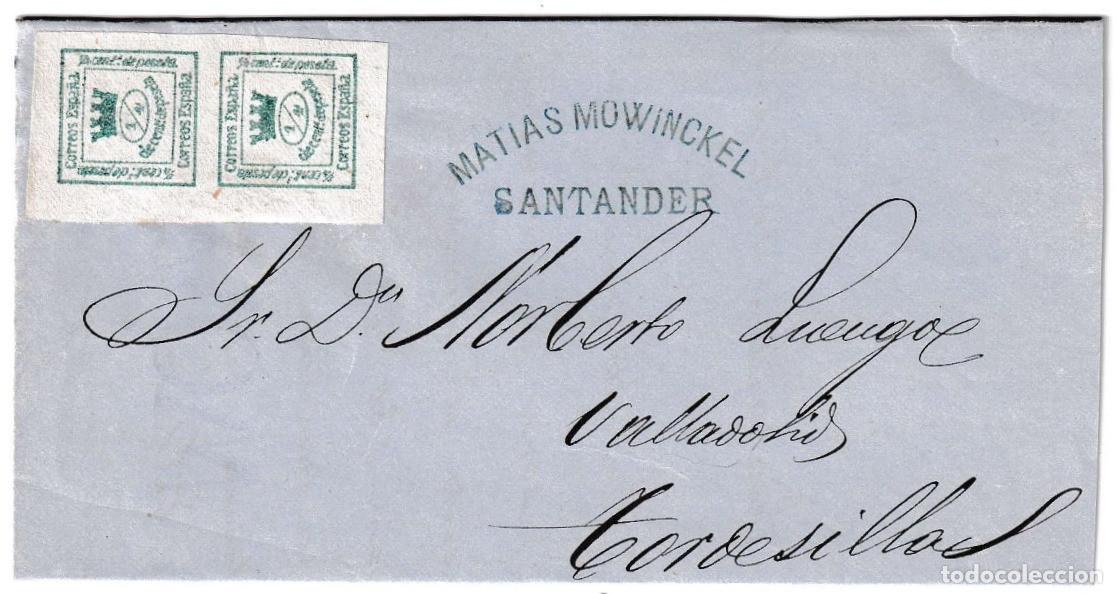 ¼ cent.º de peseta ¼ cent.º de peseta
Correos España Correos España Correos España Correos España
¼ de cent.º de peseta ¼ de cent.º de peseta
¼ cent.º de peseta ¼ cent.º de peseta
MATIAS MOWINCKEL
SANTANDER
Sr. Dn Norberto Luengo
Valladolid
Tordesillas
todocoleccion